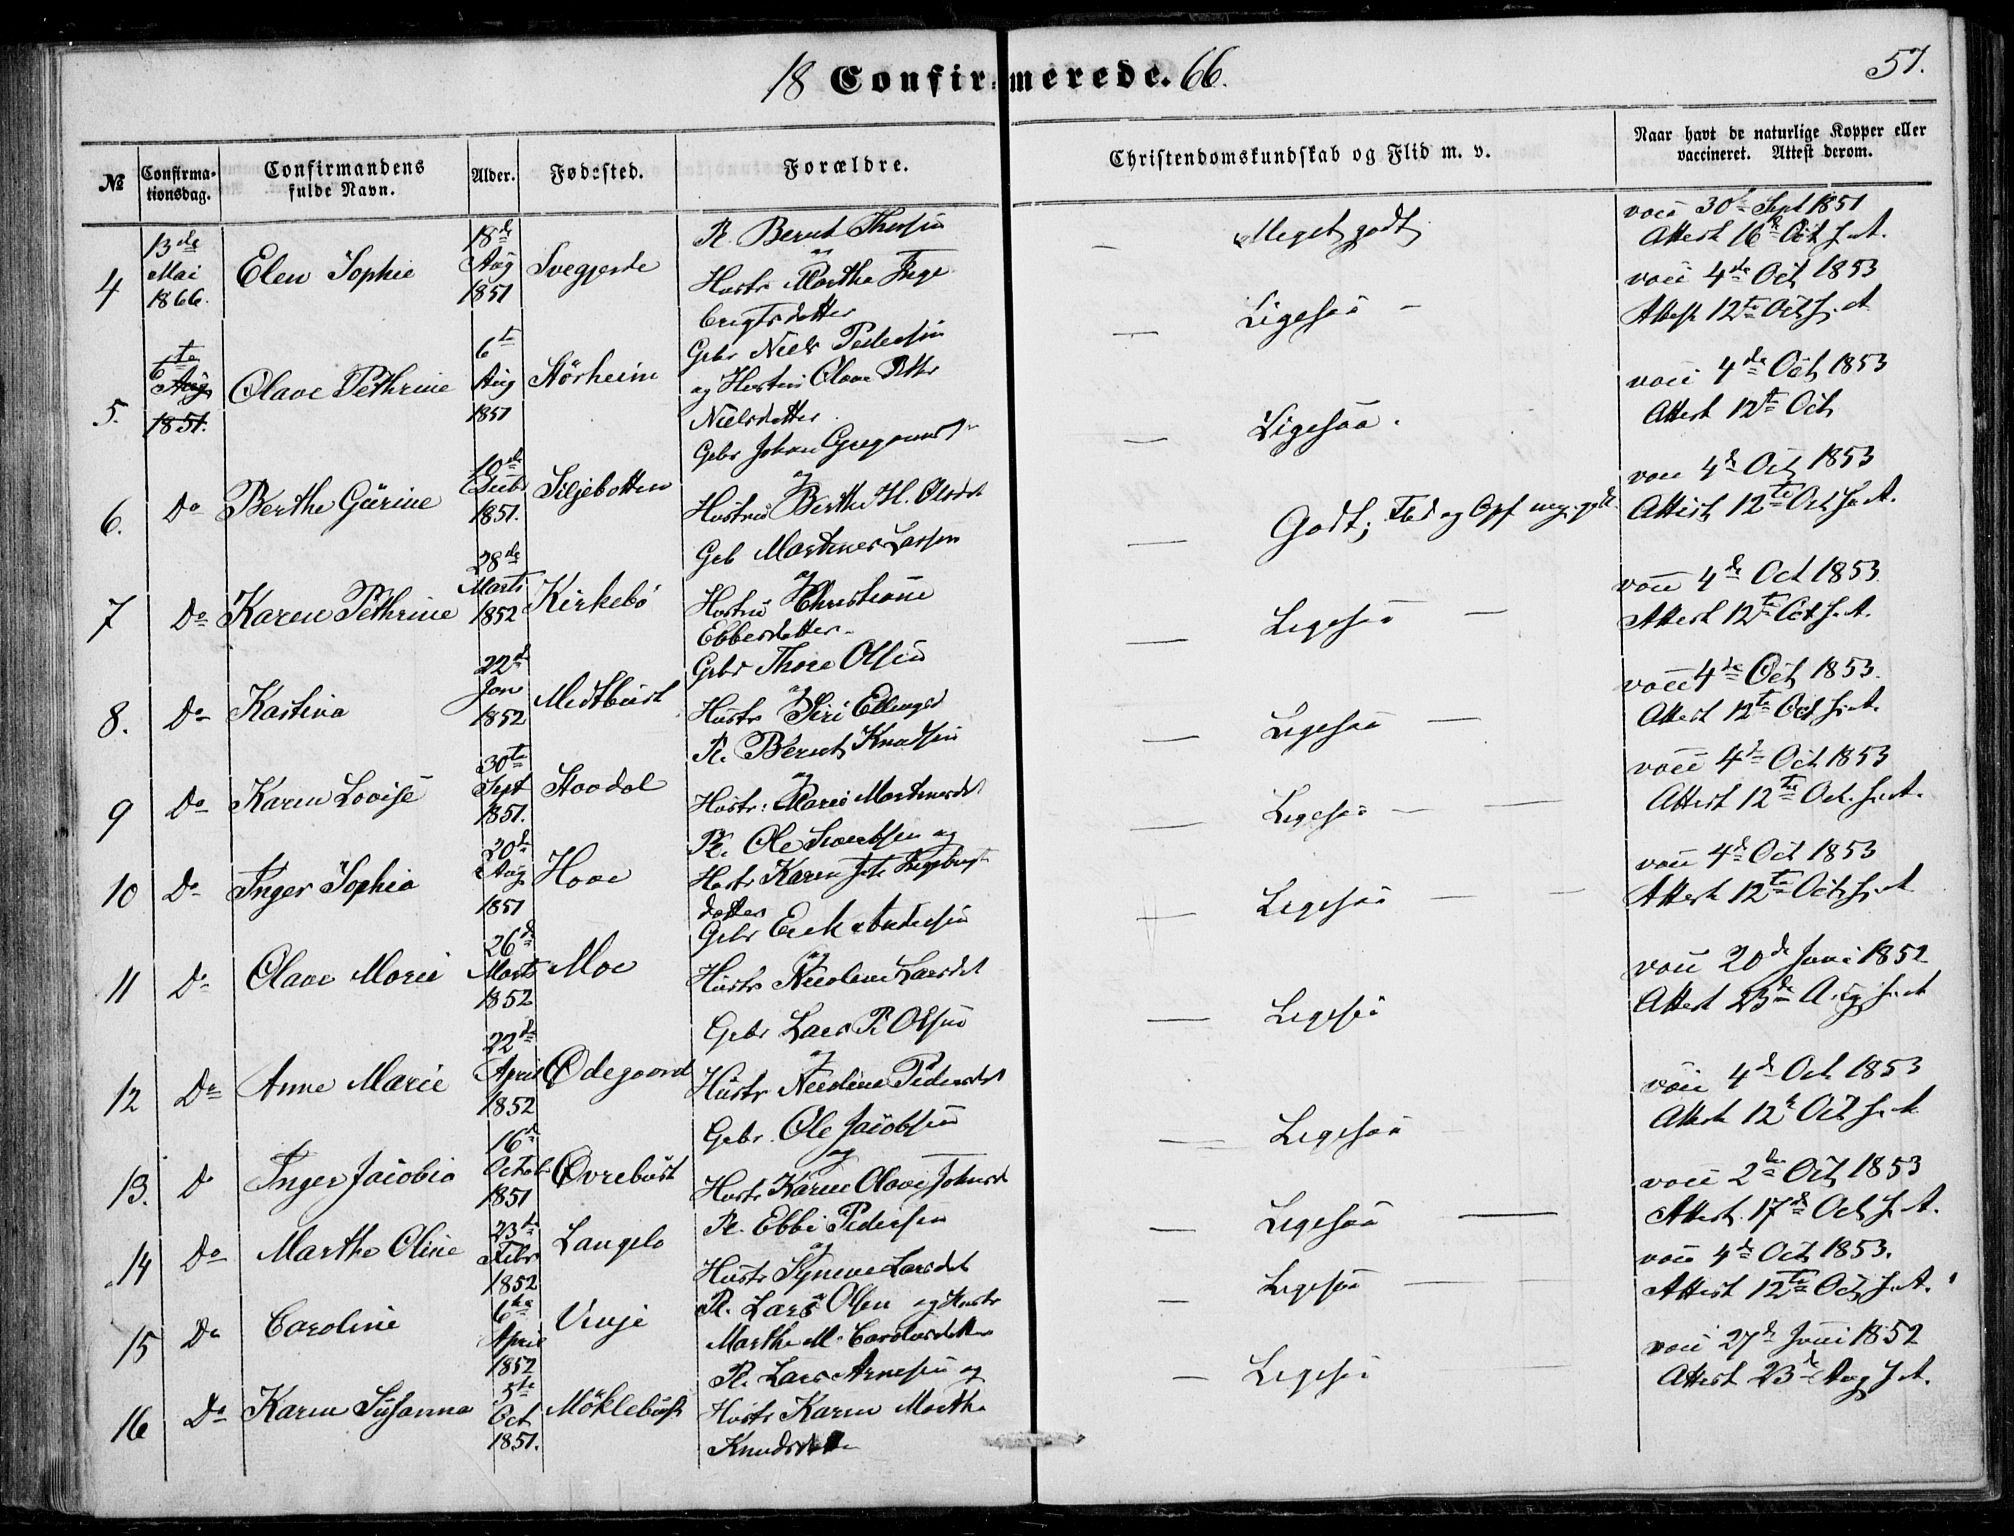 18 Confirmerede. 66.
57.
№
Confirma-
tionsdag.
Confirmandens
fulde Navn.
Alder.
Fødested.
Forældre.
Christendomskundskab og Flid m. v.
Naar havt de naturlige Kopper eller
vaccineret. Attest derom.
4
13de
Mai
1866.
Elen Sophie
18de
Aug
1851
Svegjerde
P. Bernt Thorsen
og
Hustr Marthe Inge
brigtsdatter
Meget godt
vacc 30te Sept 1851
Attest 16de Oct s. A.
5.
6te
Aug
1851.
Olave Pethrine
6te
Aug
1851
Störheim
Gbr Niels Pedersen
og Hustru Olave Pettr
Nielsdatter
Ligesaa
vacc 4de Oct 1853
Attest 12te Oct s. A
6.
Do
Berthe Gurine
10de
Decbr
1851.
Siljebotten
Gbr Johan
og
Hustru Berthe H. Olsdt
Ligesaa.
vacc 4de Oct 1853
Attest 12te Oct
7
Do
Karen Pethrine
28de
Marts
1852
Kirkebö
Gb Martinus Larsen
og
Hustru Christiane
Ebbesdatter
Godt; Flid og Opf meg. godt.
vacc 4de Oct 1853
Attest 12te Oct s. A.
8.
Do
Kastina
22de
Jan
1852
Medtbust
Gbr Thore Olsen
og
Hustr Siri Ellingsd
Ligesaa
vacc 4de Oct 1853
Attest 12te Oct s. A.
9
Do
Karen Lovise
30te
Sept
1851.
Staadal
P. Bernt Knudsen
og
Hustr: Maria Martinusdt
Ligesaa
vacc 4de Oct 1853.
Attest 12te Oct s. A.
10
Do
Inger Sophia
20de
Aug
1851
Hove
P. Ole Sivertsen og
Hustr Karen
datter
Ligesaa
vacc 4de Oct 1853
Attest 12te Oct. s. A.
11
Do
Olave Marie
26de
Marts
1852
Moe
Gbr Erik Andersen
og
Hustr Nicoline Larsdt
Ligesaa
vacc 4de Oct 1853
Attest 12te Oct s. A
12
Do
Anne Marie
22de
April
1852
Ødegaard
Gbr Lars P. Olsen
og
Hustr Nicoline Pedersdt
Ligesaa
vacc 20de Juni 1852
Attest 23de Aug s. A
13.
Do
Inger Jacobia
16de
Octob
1851
Øvrebust
Gbr. Ole Jacobsen
og
Hustr Karen Olave Johnsd
Ligesaa
vacc 4de Oct 1853
Attest 12te Oct s. A
14
Do
Marthe Oline
23de
Febr
1852
Langelo
P. Ebbe Pedersen
og
Hustr Synneve Larsdt
Ligesaa
vacc 2de Oct 1853
Attest 17de Oct s. A.
15
Do
Caroline
6te
April
1852
Vinje
P. Lars Olsen og Hustr
Marthe M. Carolusdatter
Ligesaa
vacc 4de Oct 1853.
Attest 12te Oct s. A.
16
Do
Karen Susanna
5te
Oct
1851.
Möklebust
P. Lars Arnesen og
Hustr Karen Marthe
Knudsdatter
Ligesaa
vacc 27de Juni 1852
Attest 23de Aug s. A.